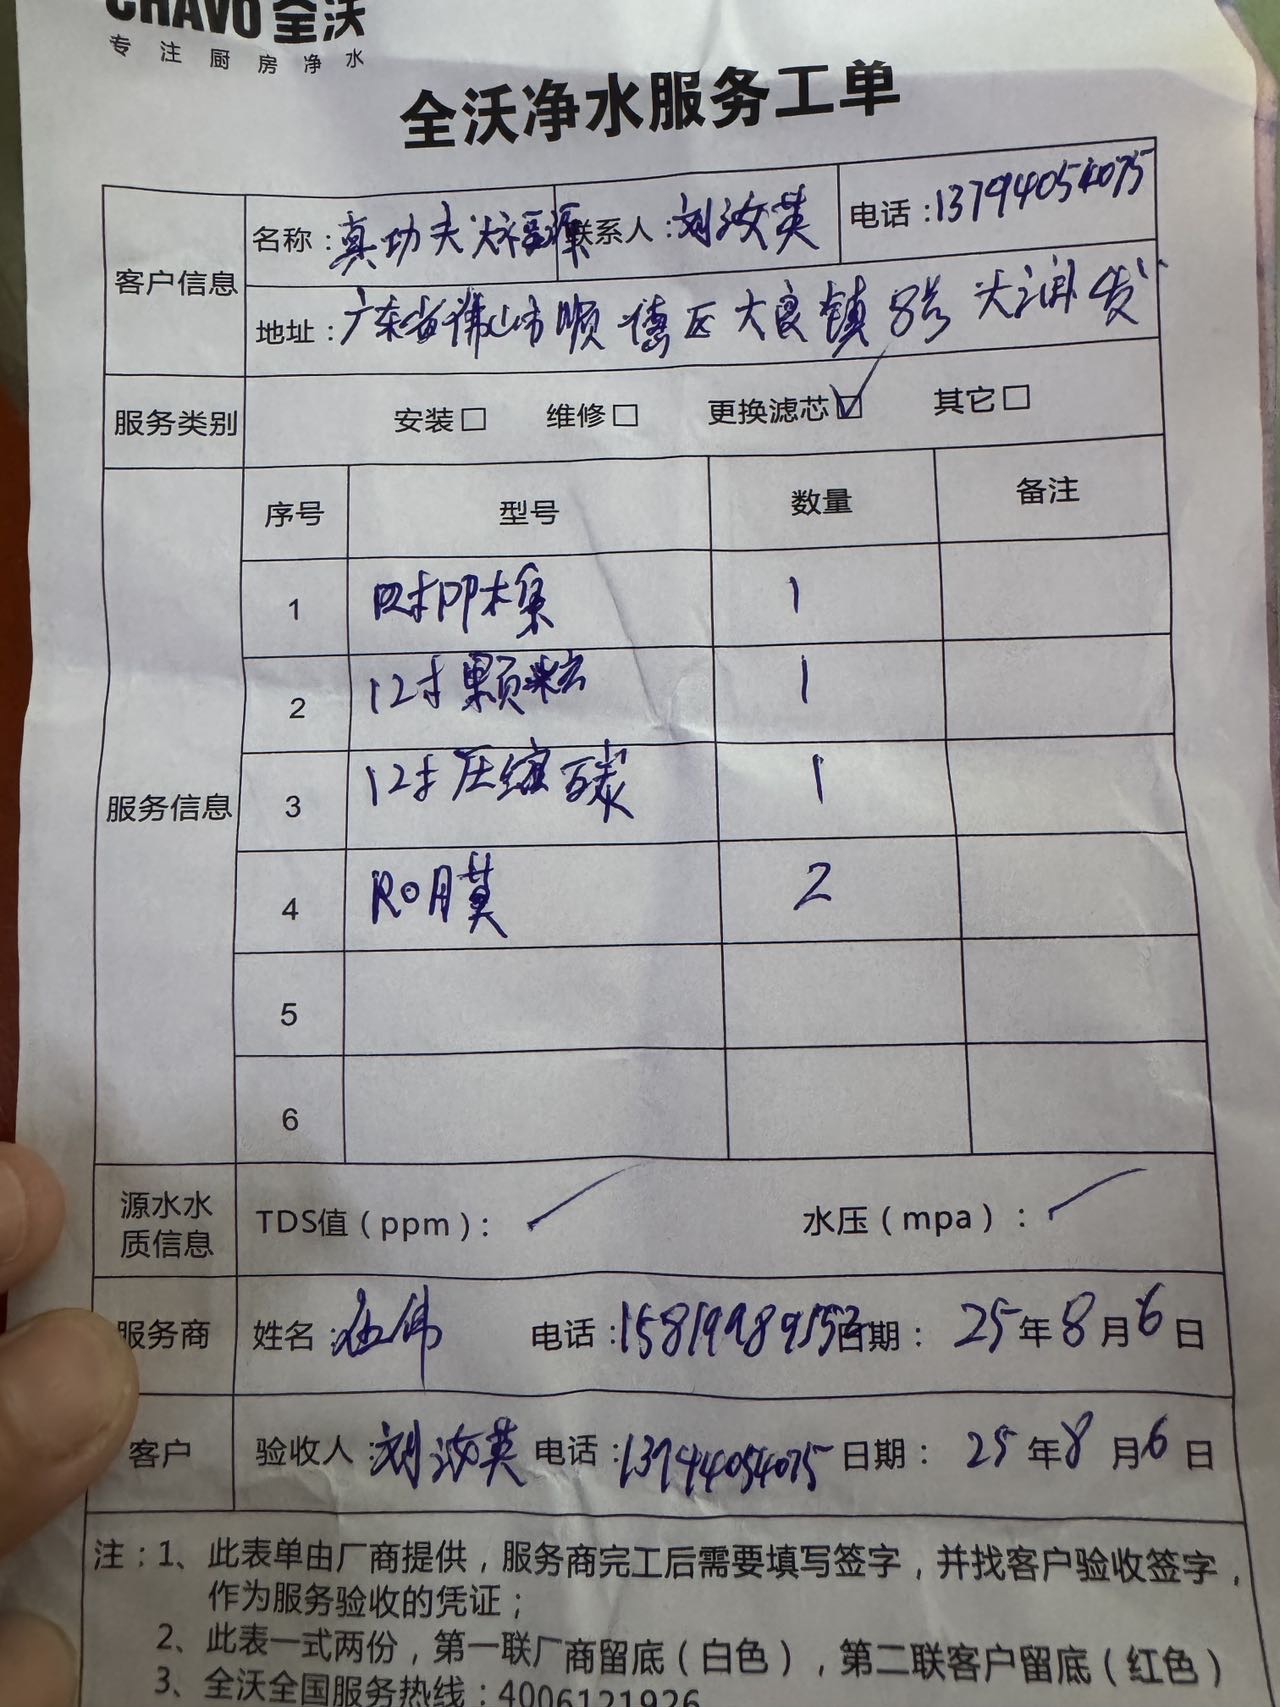 CHAVO 全沃
专注厨房净水
全沃净水服务工单
客户信息
名称：真功夫大福源 联系人：刘汝英 电话：13794054075
地址：广东省佛山市顺德区大良镇8号大润发
服务类别 安装□ 维修□ 更换滤芯☑ 其它□
服务信息
序号 型号 数量 备注
1 四寸PP棉 1
2 12寸颗粒 1
3 12寸压缩碳 1
4 RO膜 2
5
6
源水水质信息 TDS值（ppm）： 水压（mpa）：
服务商 姓名：伍伟 电话：15819989152 日期： 25年8月6日
客户 验收人：刘汝英 电话：13794054075 日期： 25年8月6日
注：1、此表单由厂商提供，服务商完工后需要填写签字，并找客户验收签字，
作为服务验收的凭证；
2、此表一式两份，第一联厂商留底（白色），第二联客户留底（红色）
3、全沃全国服务热线：4006121926